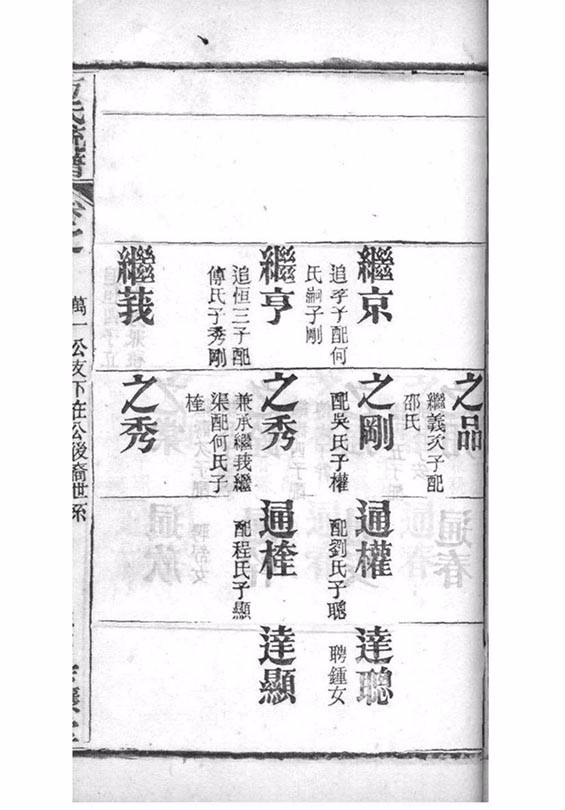 之品
繼義次子配
邵氏
繼京
追季子配何
氏嗣子剛
之剛
配吳氏子權
通權
配劉氏子聰
達聰
聘鍾女
繼亨
追恒三子配
傅氏子秀剛
之秀
兼承繼莪繼
渠配何氏子
桂
通桂
配程氏子顯
達顯
繼莪
之秀
氏統譜
卷之一
萬一公支下在公後裔世系